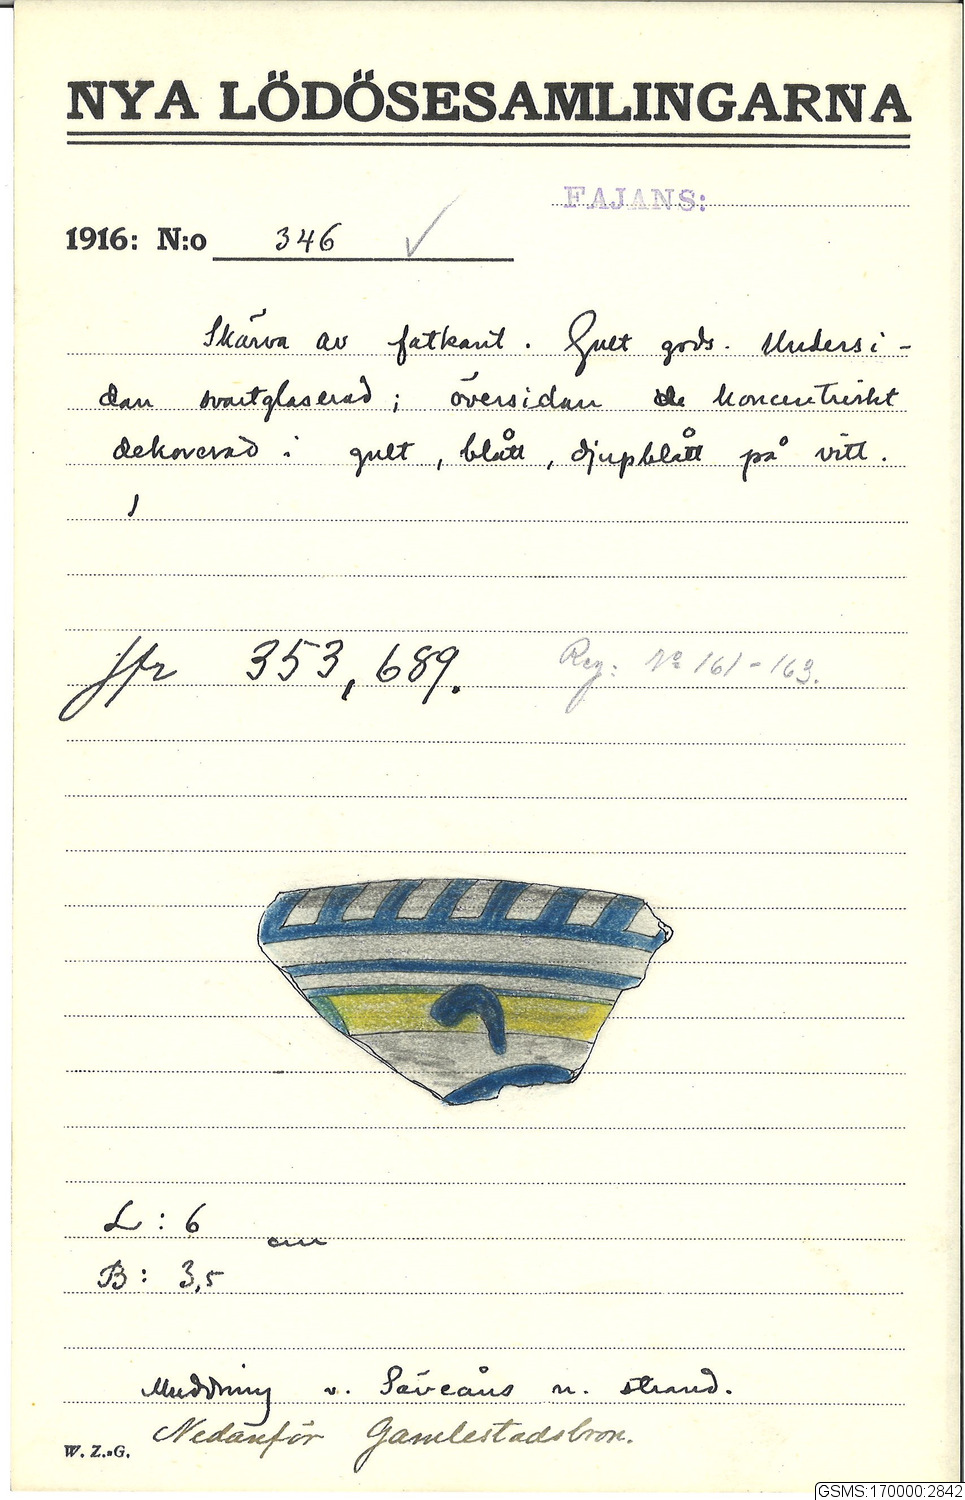 NYA LÖDÖSESAMLINGARNA
FAJANS:
1916: N:o 346
Skärva av fatkant. Gult gods. Undersi-
dan svartglaserad; översidan koncentriskt
dekorerad i gult, blått, djupblått på vitt.
jfr 353, 689.
Reg: No 161-163.
L: 6
cm
B: 3,5
Muddring v. Säveåns n. strand.
Nedanför Gamlestadsbron.
W. Z.=G.
GSMS:170000:2842